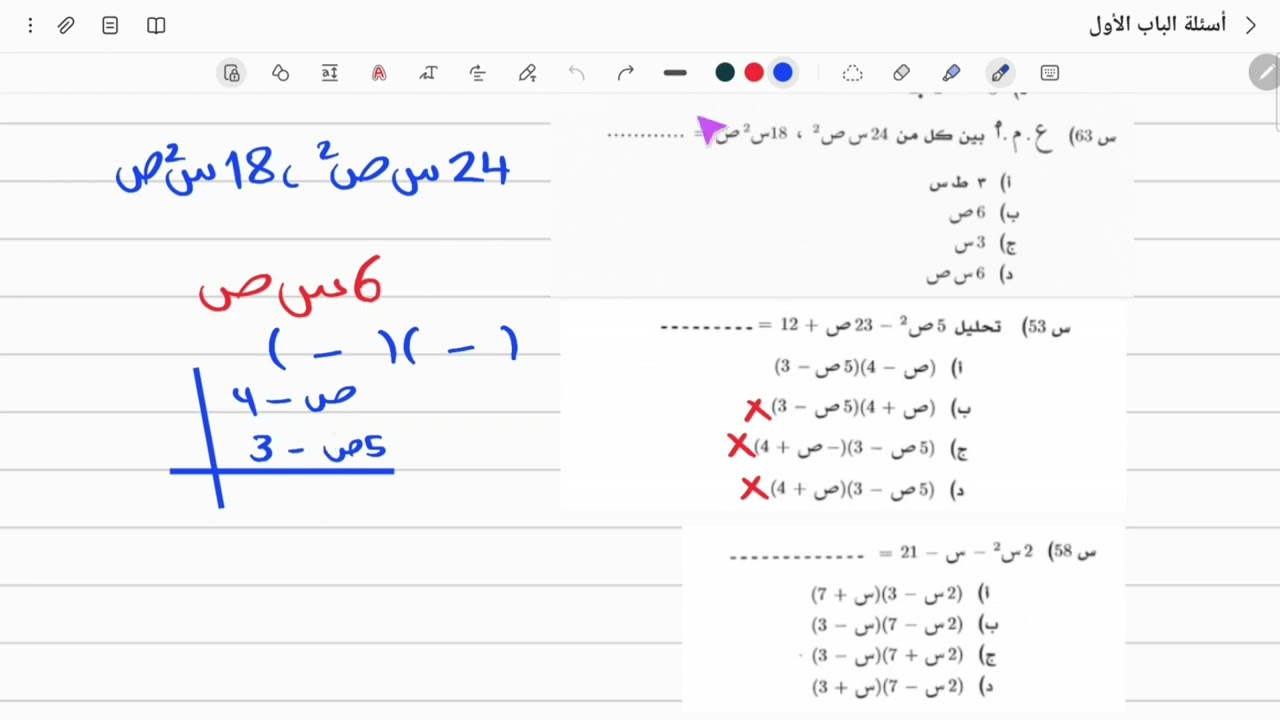 أسئلة الباب الأول
س 63) ع.م.أ بين كل من 24 س ص² ، 18س² ص = ............
أ) ٣ ط س
ب) 6 ص
ج) 3 س
د) 6 س ص
س 53) تحليل 5 ص² − 23 ص + 12 = ---------
أ) (ص − 4)(5 ص − 3)
ب) (ص + 4)(5 ص − 3) ×
ج) (5 ص − 3)(−ص + 4) ×
د) (5 ص − 3)(ص + 4) ×
س 58) 2 س² − س − 21 = -------------
أ) (2 س − 3)(س + 7)
ب) (2 س − 7)(س − 3)
ج) (2 س + 7)(س − 3)
د) (2 س − 7)(س + 3)
24 س ص² ، 18 س² ص
6 س ص
( − )( − )
ص − 4
5ص − 3